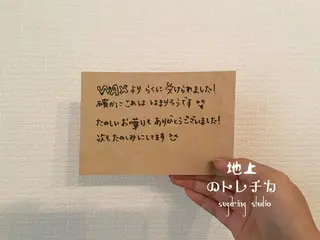 WAXより らくに 受けられました!
確かに これは はまりそうです
たのしい お喋りも ありがとうございました!
次も たのしみにしてます
地上
のトレチカ
sugaring studio